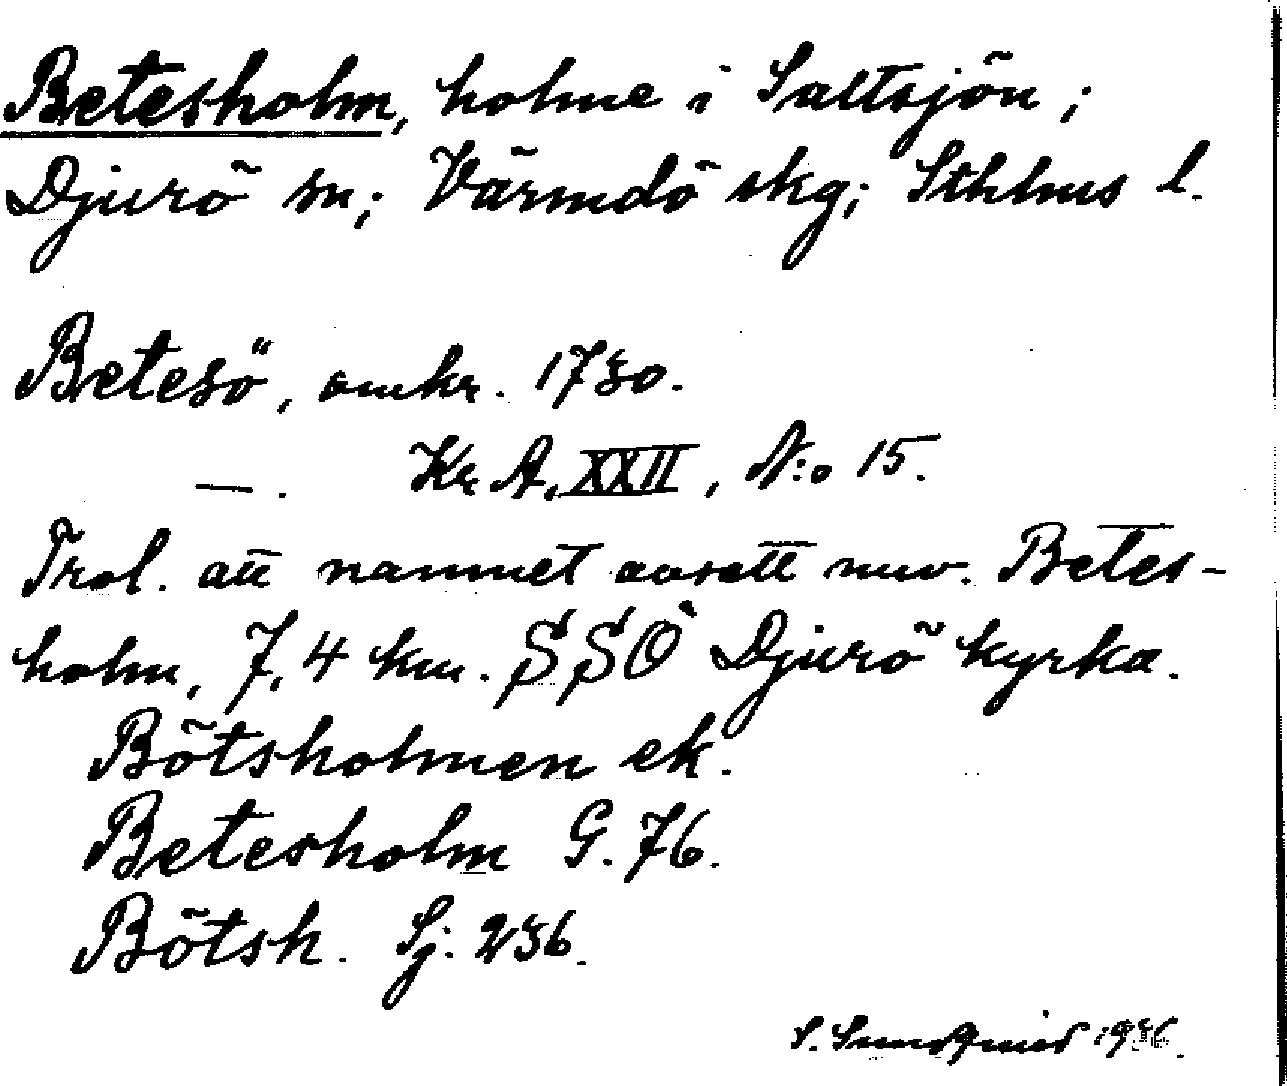 Betesholm, holme i Saltsjön;
Djurö sn; Värmdö skg; Sthlms l.
Betesö, omkr. 1730.
—. Kr A, XXII, N:o 15.
Trol. att namnet avsett nuv. Betes-
holm, 7,4 km. SSÖ Djurö kyrka.
Bötsholmen ek.
Betesholm G. 76.
Bötsh. Sj. 236.
S. Sundqvist